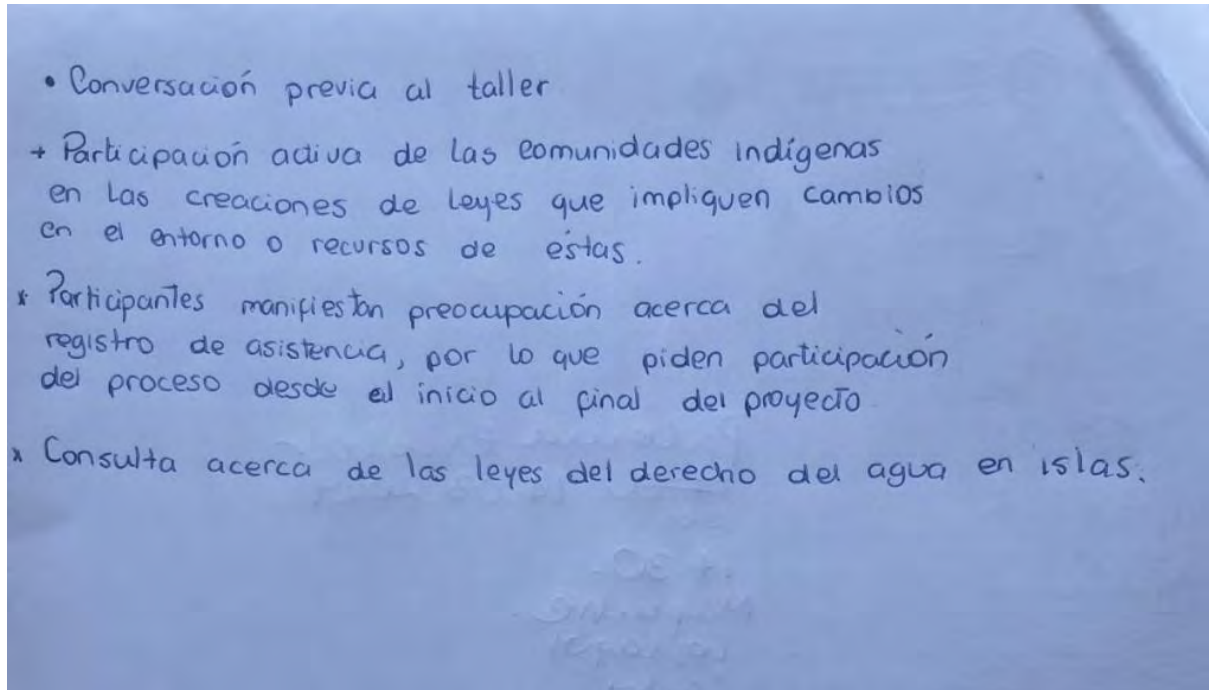 • Conversación previa al taller
+ Participación activa de las comunidades indígenas
en las creaciones de leyes que impliquen cambios
en el entorno o recursos de estas.
* Participantes manifiestan preocupación acerca del
registro de asistencia, por lo que piden participación
del proceso desde el inicio al final del proyecto.
* Consulta acerca de las leyes del derecho del agua en islas.